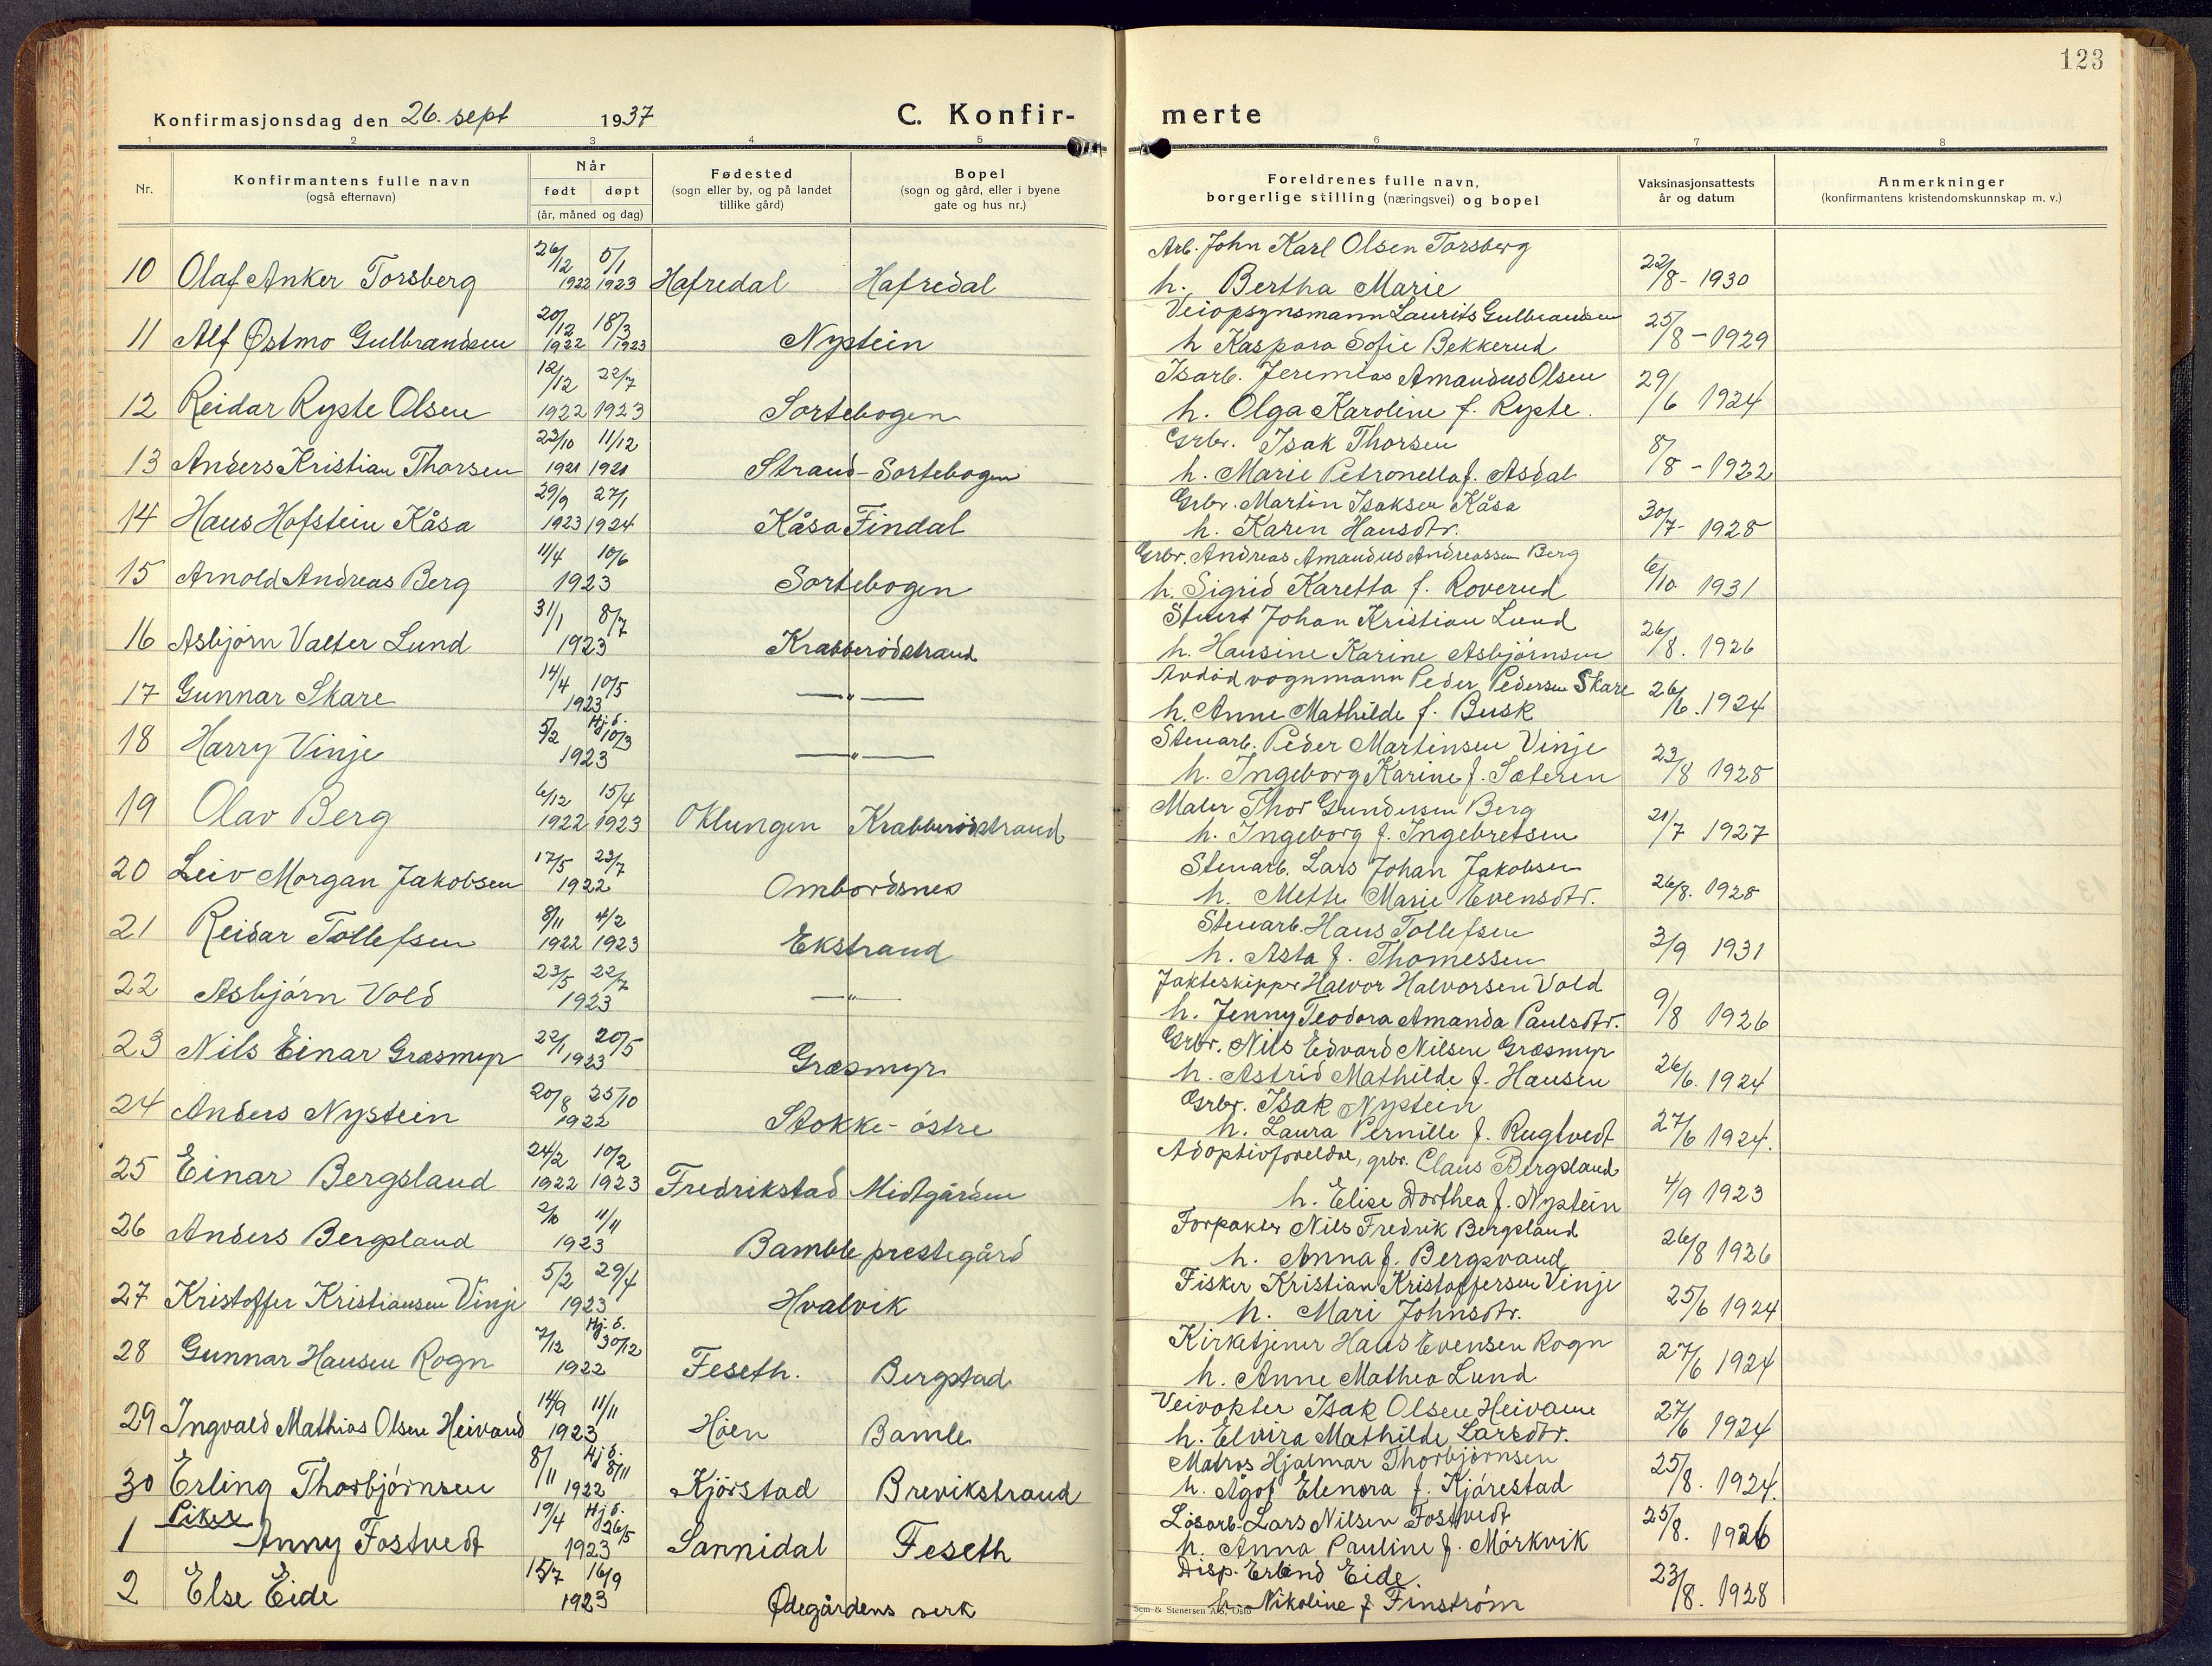 123
Konfirmasjonsdag den 26. sept 1937
C. Konfir-
merte
1 2 3 4 5 6 7 8
Nr.
Konfirmantens fulle navn
(også efternavn)
Når
født døpt
(år, måned og dag)
Fødested
(sogn eller by, og på landet
tillike gård)
Bopel
(sogn og gård, eller i byene
gate og hus nr.)
Foreldrenes fulle navn,
borgerlige stilling (næringsvei) og bopel
Vaksinasjonsattests
år og datum
Anmerkninger
(konfirmantens kristendomskunnskap m. v.)
10 Olaf Anker Torsberg 26/12 1922 5/1 1923 Hafredal Hafredal
Arb. John Karl Olsen Torsberg
h. Bertha Marie 22/8 - 1930
11 Alf Østmo Gulbrandsen 20/12 1922 18/3 1923 Nystein
Veiopsynsmann Laurits Gulbrandsen
h Kaspara Sofie Bekkerud 25/8 - 1929
12 Reidar Rypte Olsen 12/12 1922 22/7 1923 Sortebogen
Isarb. Jeremias Amandus Olsen
h. Olga Karoline f. Rypte. 29/6 1924
13 Anders Kristian Thorsen 23/10 1921 11/12 1921 Strand-Sortebogen
Grbr. Isak Thorsen
h. Marie Petronella f. Asdal 8/8 - 1922
14 Hans Hofstein Kåsa 29/9 1923 27/1 1924 Kåsa Findal
Grbr. Martin Isaksen Kåsa
h. Karen Hansdtr. 30/7 - 1928
15 Arnold Andreas Berg 11/4 10/6 1923 Sortebogen
Grbr. Andreas Amandus Andreassen Berg
h. Sigrid Karetta f. Roverud 6/10 1931
16 Asbjörn Valter Lund 31/1 8/7 1923 Krabberödstrand
Stuert Johan Kristian Lund
h. Hansine Karine Asbjörnsen 26/8. 1926
17 Gunnar Skare 14/4 10/5 1923 —„—
Avdöd vognmann Peder Pedersen Skare
h. Anne Mathilde f. Busk 26/6. 1924
18 Harry Vinje 5/2 Hj.d. 10/3 1923 —„—
Stenarb. Peder Martinsen Vinje
h. Ingeborg Karine f. Sæteren 23/8 1928
19 Olav Berg 6/12 1922 15/4 1923 Oklungen Krabberödstrand
Maler Thor Gundersen Berg
h. Ingeborg f. Ingebretsen 21/7 1927
20 Leiv Morgan Jakobsen 17/5 23/7 1922 Ombordsnes
Stenarb. Lars Johan Jakobsen
h. Mette Marie Evensdtr. 26/8. 1928
21 Reidar Tollefsen 8/11 1922 4/2 1923 Ekstrand
Stenarb. Hans Tollefsen
h. Asta f. Thomessen 3/9 1931
22 Asbjörn Vold 23/5 22/7 1923 —„—
Jakteskipper Halvor Halvorsen Vold
h. Jenny Teodora Amanda Paulsdtr. 9/8 1926
23 Nils Einar Græsmyr 22/1 20/5 1923 Græsmyr
Grbr. Nils Edvard Nilsen Græsmyr
h. Astrid Mathilde f. Hansen 26/6. 1924
24 Anders Nystein 20/8 25/10 1922 Stokke-östre
Grbr. Isak Nystein
h. Laura Pernille f. Rugtvedt 27/6 1924.
25 Einar Bergsland 24/2 1922 10/2 1923 Fredrikstad Midtgården
Adoptivforeldre, grbr. Claus Bergsland
h. Elise Dorthea f. Nystein 4/9 1923
26 Anders Bergsland 2/10 11/11 1923 Bamble prestegård
Forpakter Nils Fredrik Bergsland
h. Anna f. Bergsvand 26/8 1926
27 Kristoffer Kristiansen Vinje 5/2 29/4 1923 Hvalvik
Fisker Kristian Kristoffersen Vinje
h. Mari Johnsdtr. 25/6 1924
28 Gunnar Hansen Rogn 7/12 Hj.d. 30/12 1922 Feseth. Bergstad
Kirketjener Hans Evensen Rogn
h. Anne Mathea Lund 27/6 1924
29 Ingvald Mathias Olsen Heivand 14/9 11/11 1923 Höen Bamle
Veivokter Isak Olsen Heivann
h. Elvira Mathilde Larsdtr. 27/6 1924
30 Erling Thorbjörnsen 8/11 Hj.d. 8/11 1922 Kjörstad Brevikstrand
Matros Hjalmar Thorbjörnsen
h. Ågot Elenora f. Kjörestad 25/8. 1924.
Piker
1 Anny Fostvedt 19/4 Hj.d. 26/5 1923 Sannidal Feseth
Lösarb. Lars Nilsen Fostvedt
h. Anna Pauline f. Mörkvik 25/8. 1926
2 Else Eide 15/7 16/9 1923 Ødegårdens verk
Disp. Erlend Eide.
h. Nikoline f Finström 23/8. 1928
Sem & Stenersen A/S, Oslo